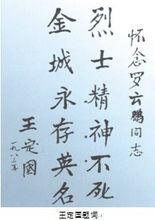 怀念罗云鹏同志
烈士精神不死
金城永存英名
王定國
一九八三年
王定国题词